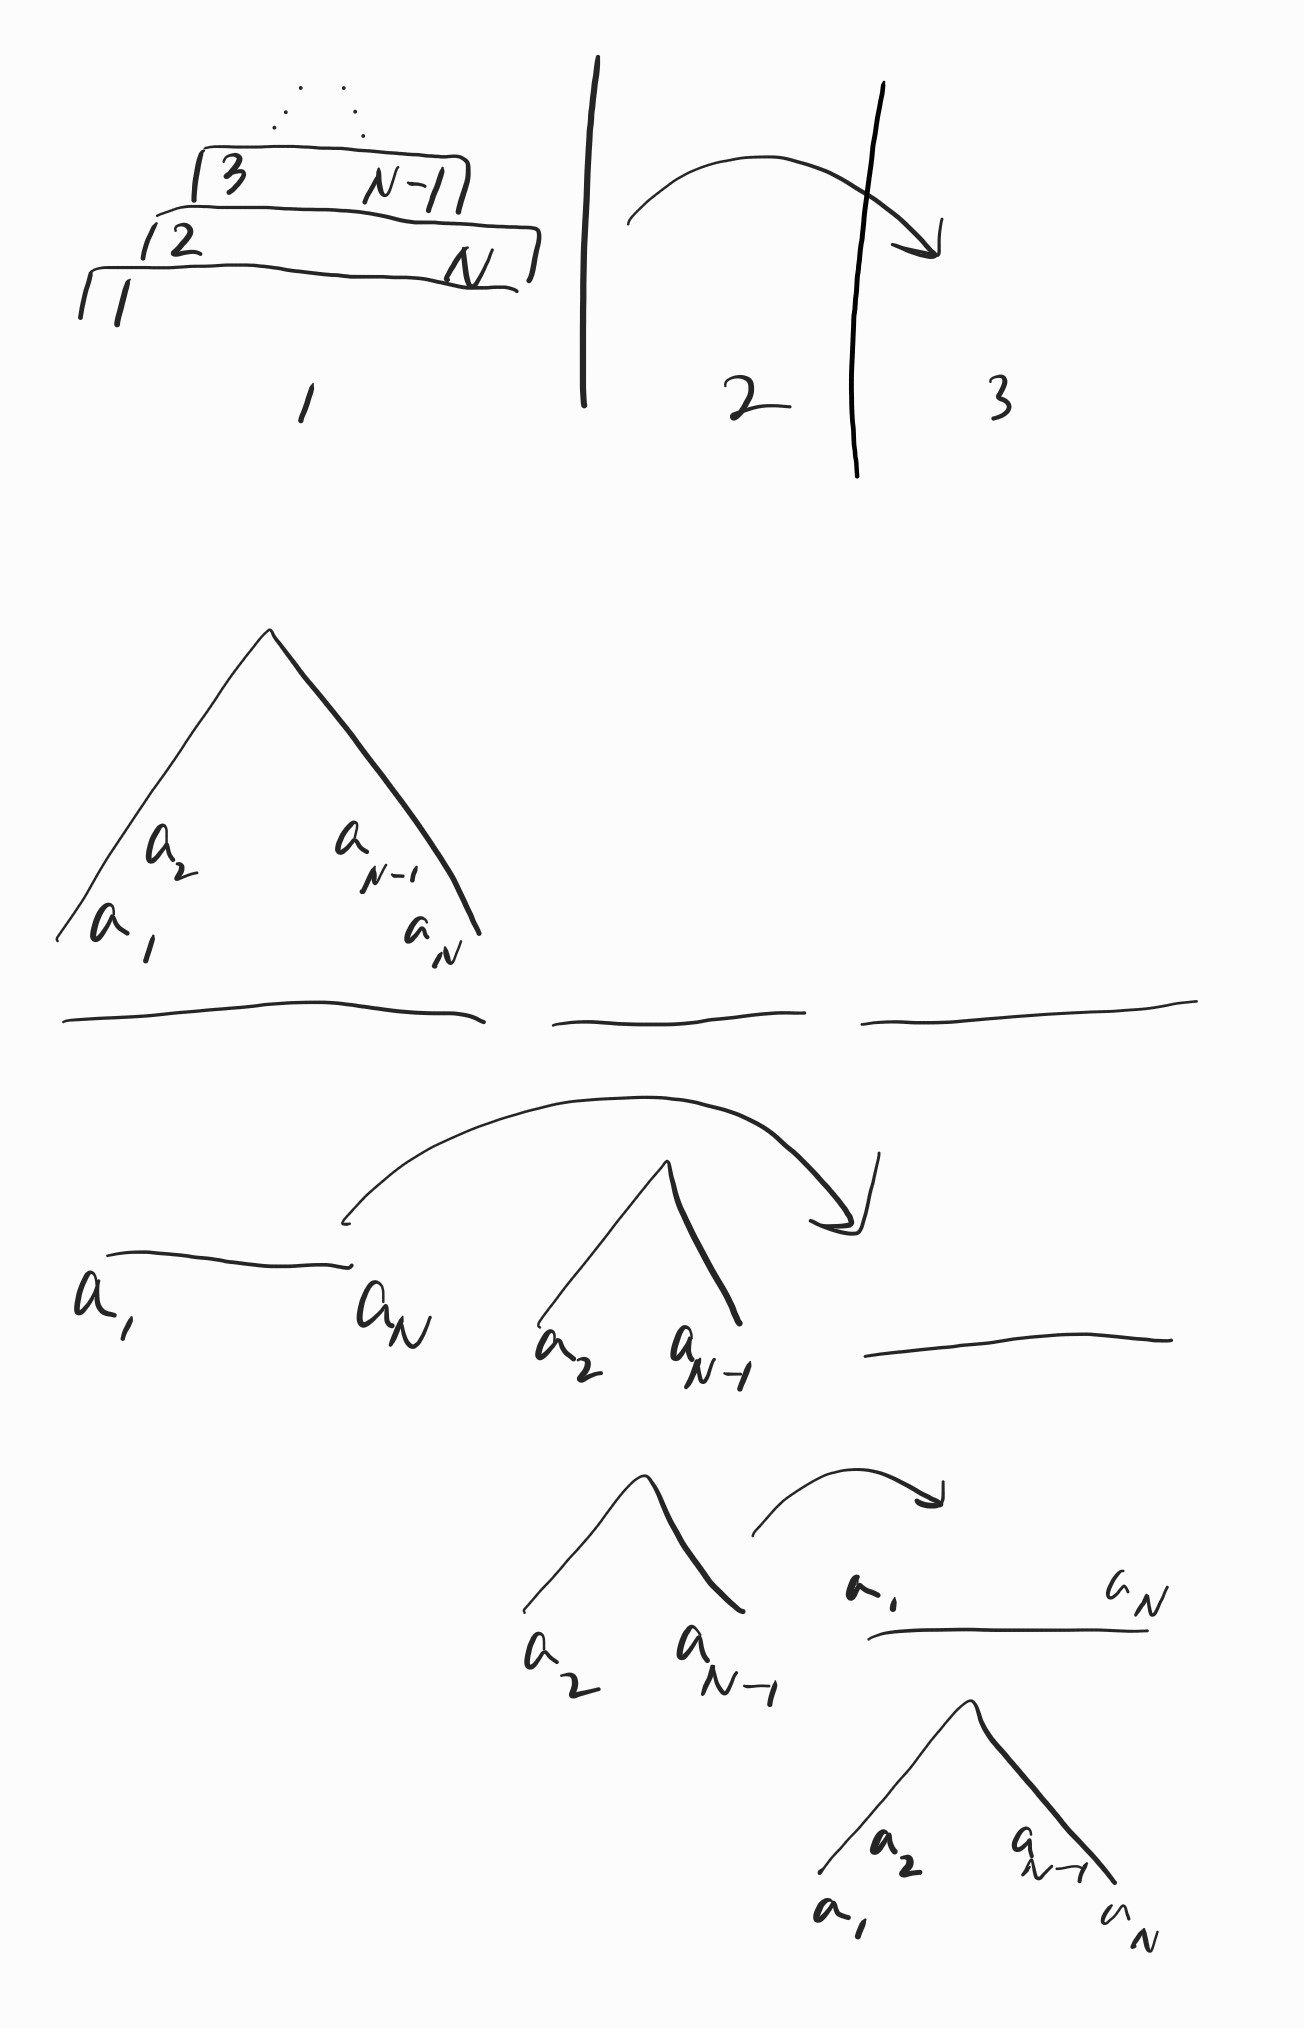 3 N-1
2 N
1
1 2 3
a₂ a_{N-1}
a₁ a_N
a₁ a_N a₂ a_{N-1}
a₁ a_N
a₂ a_{N-1}
a₂ a_{N-1}
a₁ a_N